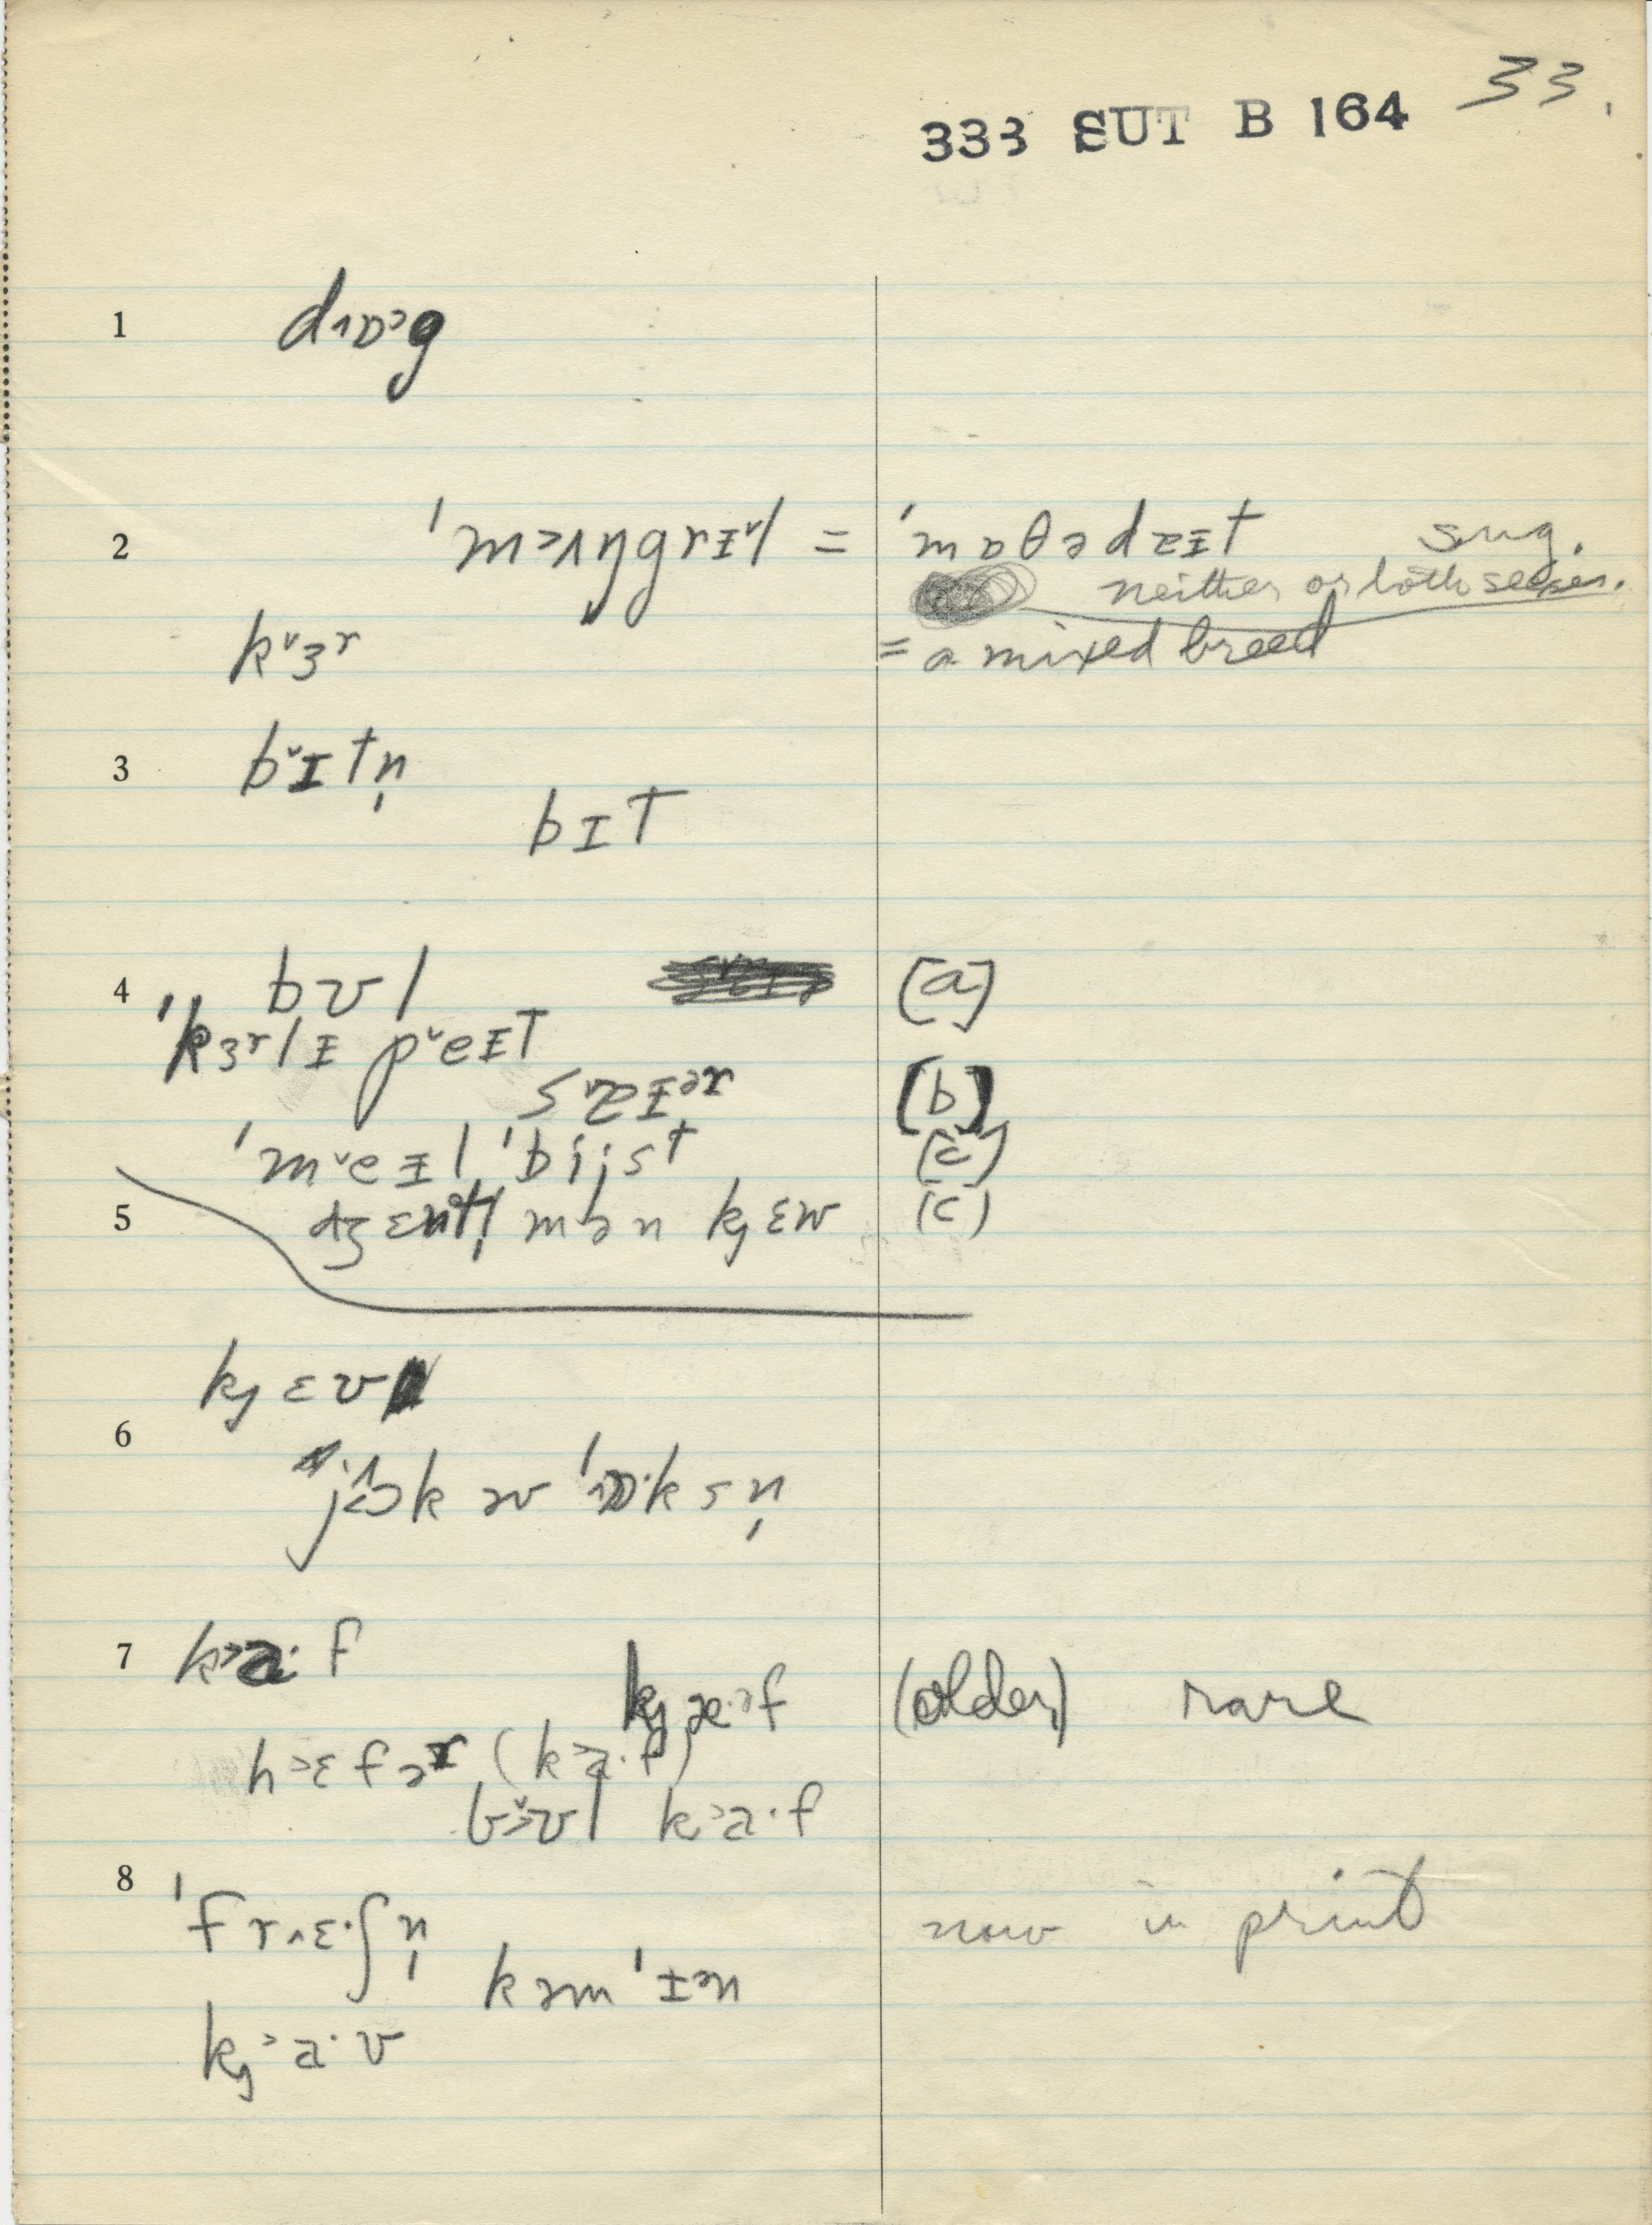 33.
333 SUT B 164
1 d˄ɒ˃g
2 ˈm˃˄ŋgrɪ˅l = ˈmɒθədɐɪt sug.
neither or both sexes.
k˅ɜr = a mixed breed
3 b˅ɪtn̩
bɪt
4 bʊl [a]
ˈkɜrlɪ p˅eɪt
s˅ɐɪər [b]
ˈm˅eɪl ˈbijst [c]
5 dʒɛntl̩mən kjɛw (c)
kjɛʊ
6 jɔk əv ˈɒ·ksn̩
7 k˃a·f
kjæ·əf (older) rare
h˃ɛfər (k˃a·f)
b˅˃ʊl k˃a·f
8 ˈfr˄ɛ·ʃn̩ now in print
kəmˈɪən
kj˃a·v